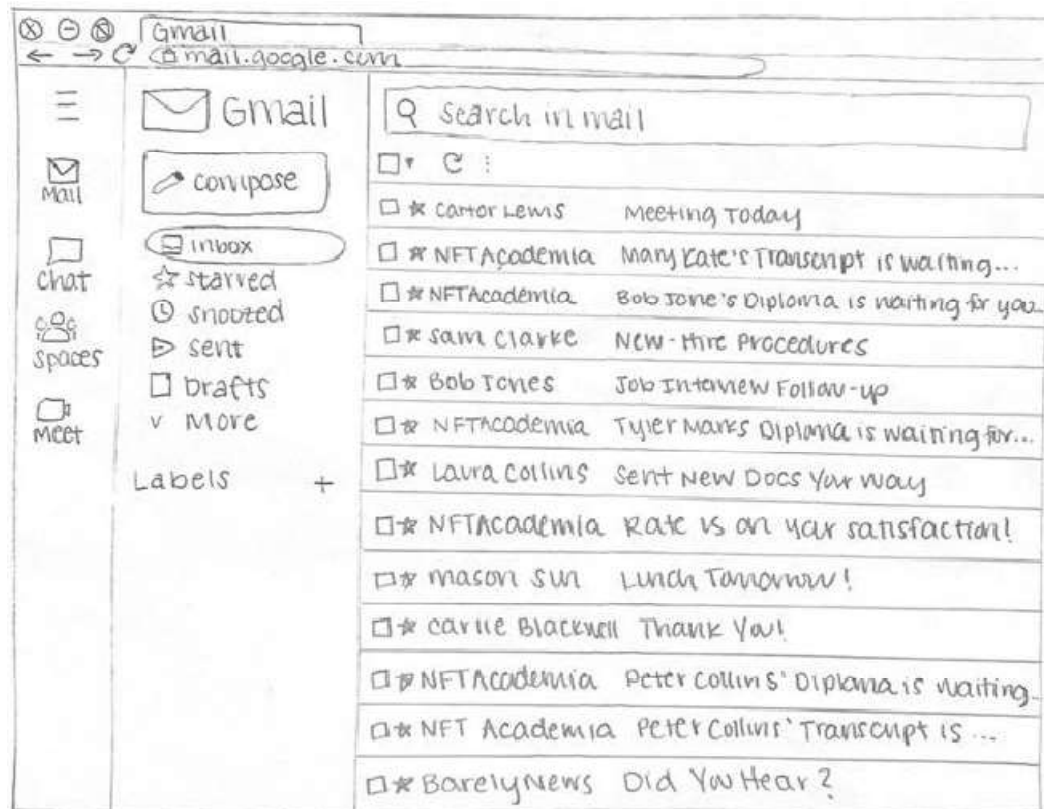 Gmail
mail.google.com
Mail
Chat
Spaces
Meet
Gmail
compose
inbox
starred
snoozed
sent
Drafts
More
Labels +
Search in mail
Carter Lewis Meeting Today
NFTAcademia Mary Kate's Transcript is waiting...
NFTAcademia Bob Jone's Diploma is waiting for you
Sam Clarke New-Hire Procedures
Bob Jones Job Interview Follow-up
NFTAcademia Tyler Marks Diploma is waiting for...
Laura Collins Sent New Docs Your Way
NFTAcademia Rate us on your satisfaction!
Mason Sun Lunch Tomorrow!
Carlie Blackwell Thank You!
NFTAcademia Peter Collins' Diploma is waiting..
NFT Academia Peter Collins' Transcript is ...
BarelyNews Did You Hear?